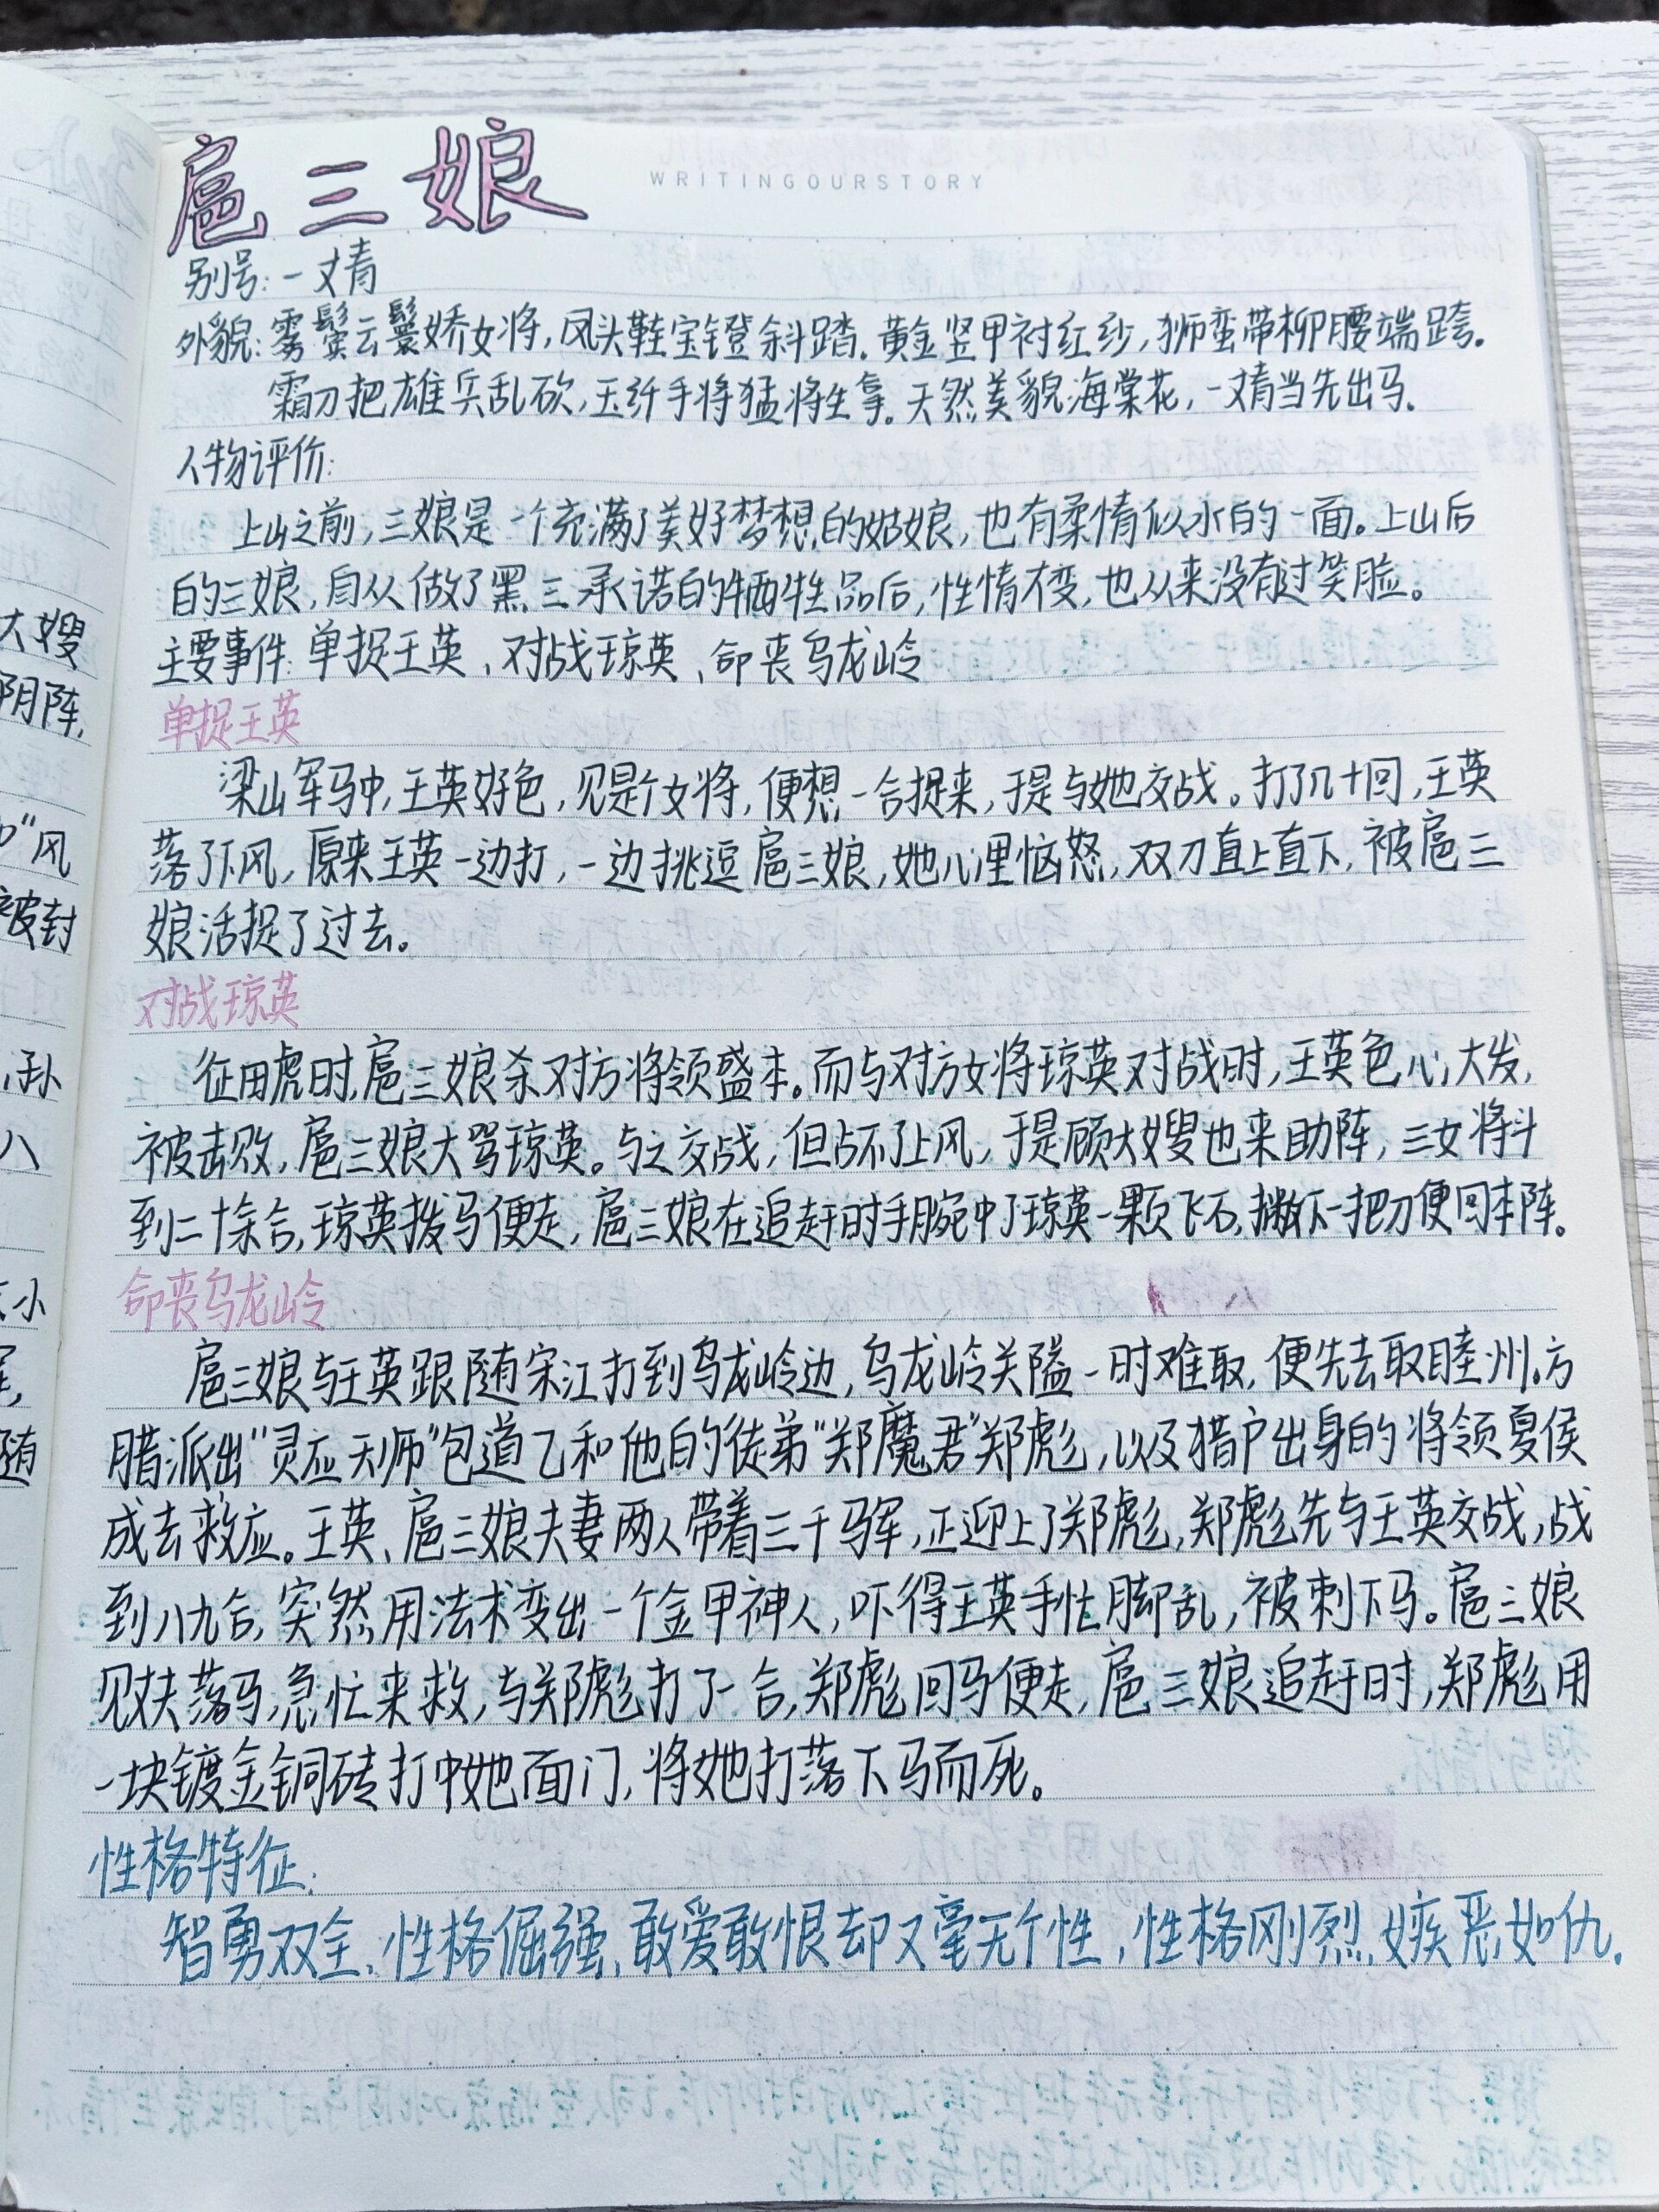 扈三娘
WRITINGOURSTORY
别号:一丈青
外貌:雾鬓云鬟娇女将,凤头鞋宝镫斜踏。黄金竖甲衬红纱,狮蛮带柳腰端跨。
霜刀把雄兵乱砍,玉纤手将猛将生拿。天然美貌海棠花,一丈青当先出马。
人物评价:
上山之前,三娘是一个充满了美好梦想的姑娘,也有柔情似水的一面。上山后
的三娘,自从做了黑三承诺的牺牲品后,性情大变,也从来没有过笑脸。
主要事件:单捉王英、对战琼英、命丧乌龙岭
单捉王英
梁山军马中,王英好色,见是个女将,便想一合捉来,于是与她交战。打了几十回,王英
落了下风,原来王英一边打,一边挑逗扈三娘,她心里恼怒,双刀直上直下,被扈三
娘活捉了过去。
对战琼英
征田虎时,扈三娘杀对方将领盛本。而与对方女将琼英对战时,王英色心大发,
被击败,扈三娘大骂琼英。与之交战,但占不了上风,于是顾大嫂也来助阵,三女将斗
到二十余合,琼英拨马便走,扈三娘在追赶时手腕中了琼英一颗飞石,撇下一把刀便回本阵。
命丧乌龙岭
扈三娘与王英跟随宋江打到乌龙岭边,乌龙岭关隘一时难取,便先去取睦州。方
腊派出“灵应天师”包道乙和他的徒弟“郑魔君”郑彪,以及猎户出身的将领夏侯
成去救应。王英、扈三娘夫妻两人带着三千马军,正迎上了郑彪,郑彪先与王英交战,战
到八九合,突然用法术变出一个金甲神人,吓得王英手忙脚乱,被刺下马。扈三娘
见丈夫落马,急忙来救,与郑彪打了一合,郑彪回马便走,扈三娘追赶时,郑彪用
一块镀金铜砖打中她面门,将她打落下马而死。
性格特征:
智勇双全、性格倔强、敢爱敢恨却又毫无个性,性格刚烈、嫉恶如仇。